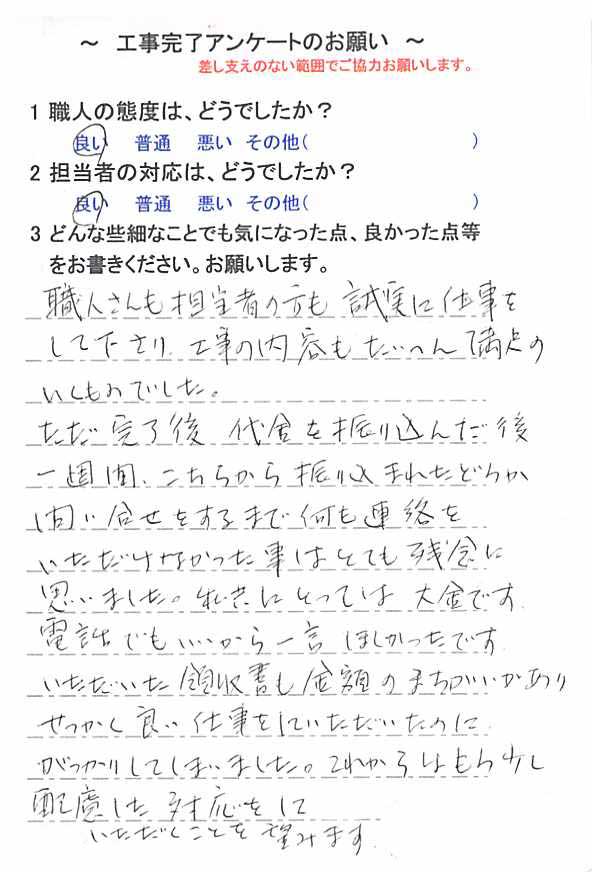 ～ 工事完了アンケートのお願い ～
差し支えのない範囲でご協力お願いします。
1 職人の態度は、どうでしたか？
良い 普通 悪い その他( )
2 担当者の対応は、どうでしたか？
良い 普通 悪い その他( )
3 どんな些細なことでも気になった点、良かった点等
をお書きください。お願いします。
職人さんも担当者の方も誠実に仕事を
して下さり、工事の内容もたいへん満点の
いくものでした。
ただ完了後 代金を振り込んだ後
一週間、こちらから振り込まれたどうか
問い合せをするまで何も連絡を
いただけなかった事はとても残念に
思いました。私共にとっては大金です
電話でもいいから一言ほしかったです
いただいた領収書も金額のまちがいがあり
せっかく良い仕事をしていただいたのに
がっかりしてしまいました。これからはもう少し
配慮した対応をして
いただくことを望みます